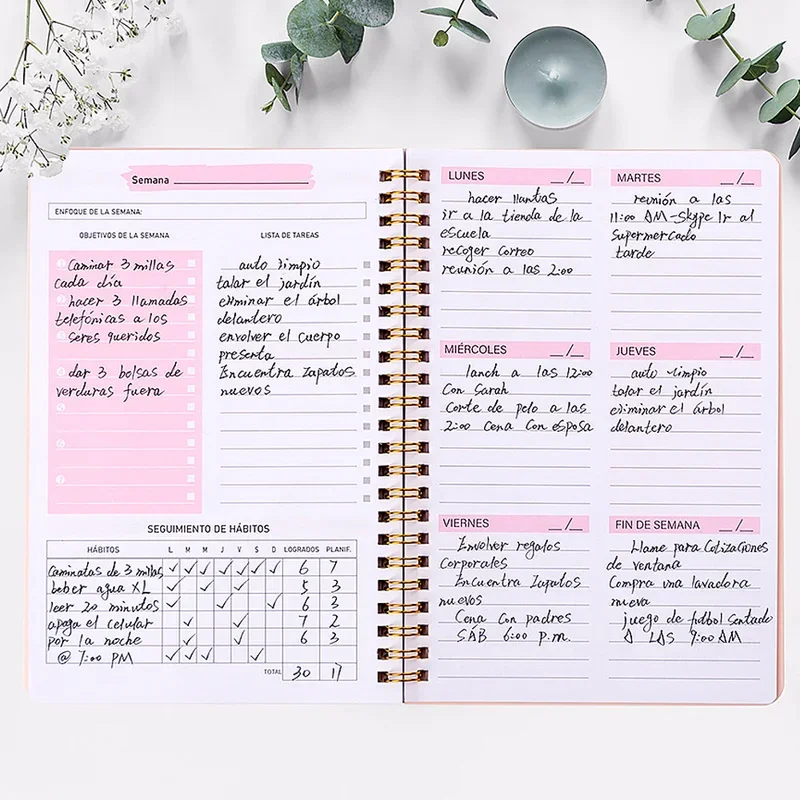 Semana
ENFOQUE DE LA SEMANA:
OBJETIVOS DE LA SEMANA
Caminar 3 millas
cada día
hacer 3 llamadas
telefónicas a los
seres queridos
dar 3 bolsas de
verduras fuera
LISTA DE TAREAS
auto limpio
talar el jardín
eliminar el árbol
delantero
envolver el cuerpo
presenta
Encuentra zapatos
nuevos
SEGUIMIENTO DE HÁBITOS
HÁBITOS L M M J V S D LOGRADOS PLANIF.
Caminatas de 3 millas ✓ ✓ ✓ ✓ ✓ ✓ ✓ 6 7
beber agua XL ✓ ✓ ✓ 5 3
leer 20 minutos ✓ ✓ ✓ 6 3
apaga el celular ✓ ✓ 7 2
por la noche ✓ ✓ 6 3
@ 7:00 PM ✓ ✓ ✓ ✓
TOTAL 30 17
LUNES __/__
hacer llantas
ir a la tienda de la
escuela
recoger correo
reunión a las 2:00
MARTES __/__
reunión a las
11:00 AM-Skype Ir al
Supermercado
tarde
MIÉRCOLES __/__
lanch a las 12:00
Con Sarah
Corte de pelo a las
2:00 Cena Con esposa
JUEVES __/__
auto limpio
talar el jardín
eliminar el árbol
delantero
VIERNES __/__
Envolver regalos
Corporales
Encuentra Zapatos
nuevos
Cena Con padres
SÁB 6:00 p.m.
FIN DE SEMANA __/__
Llame para Cotizaciones
de ventana
Compra una lavadora
nueva
juego de futbol Sentado
A LAS 9:00 AM